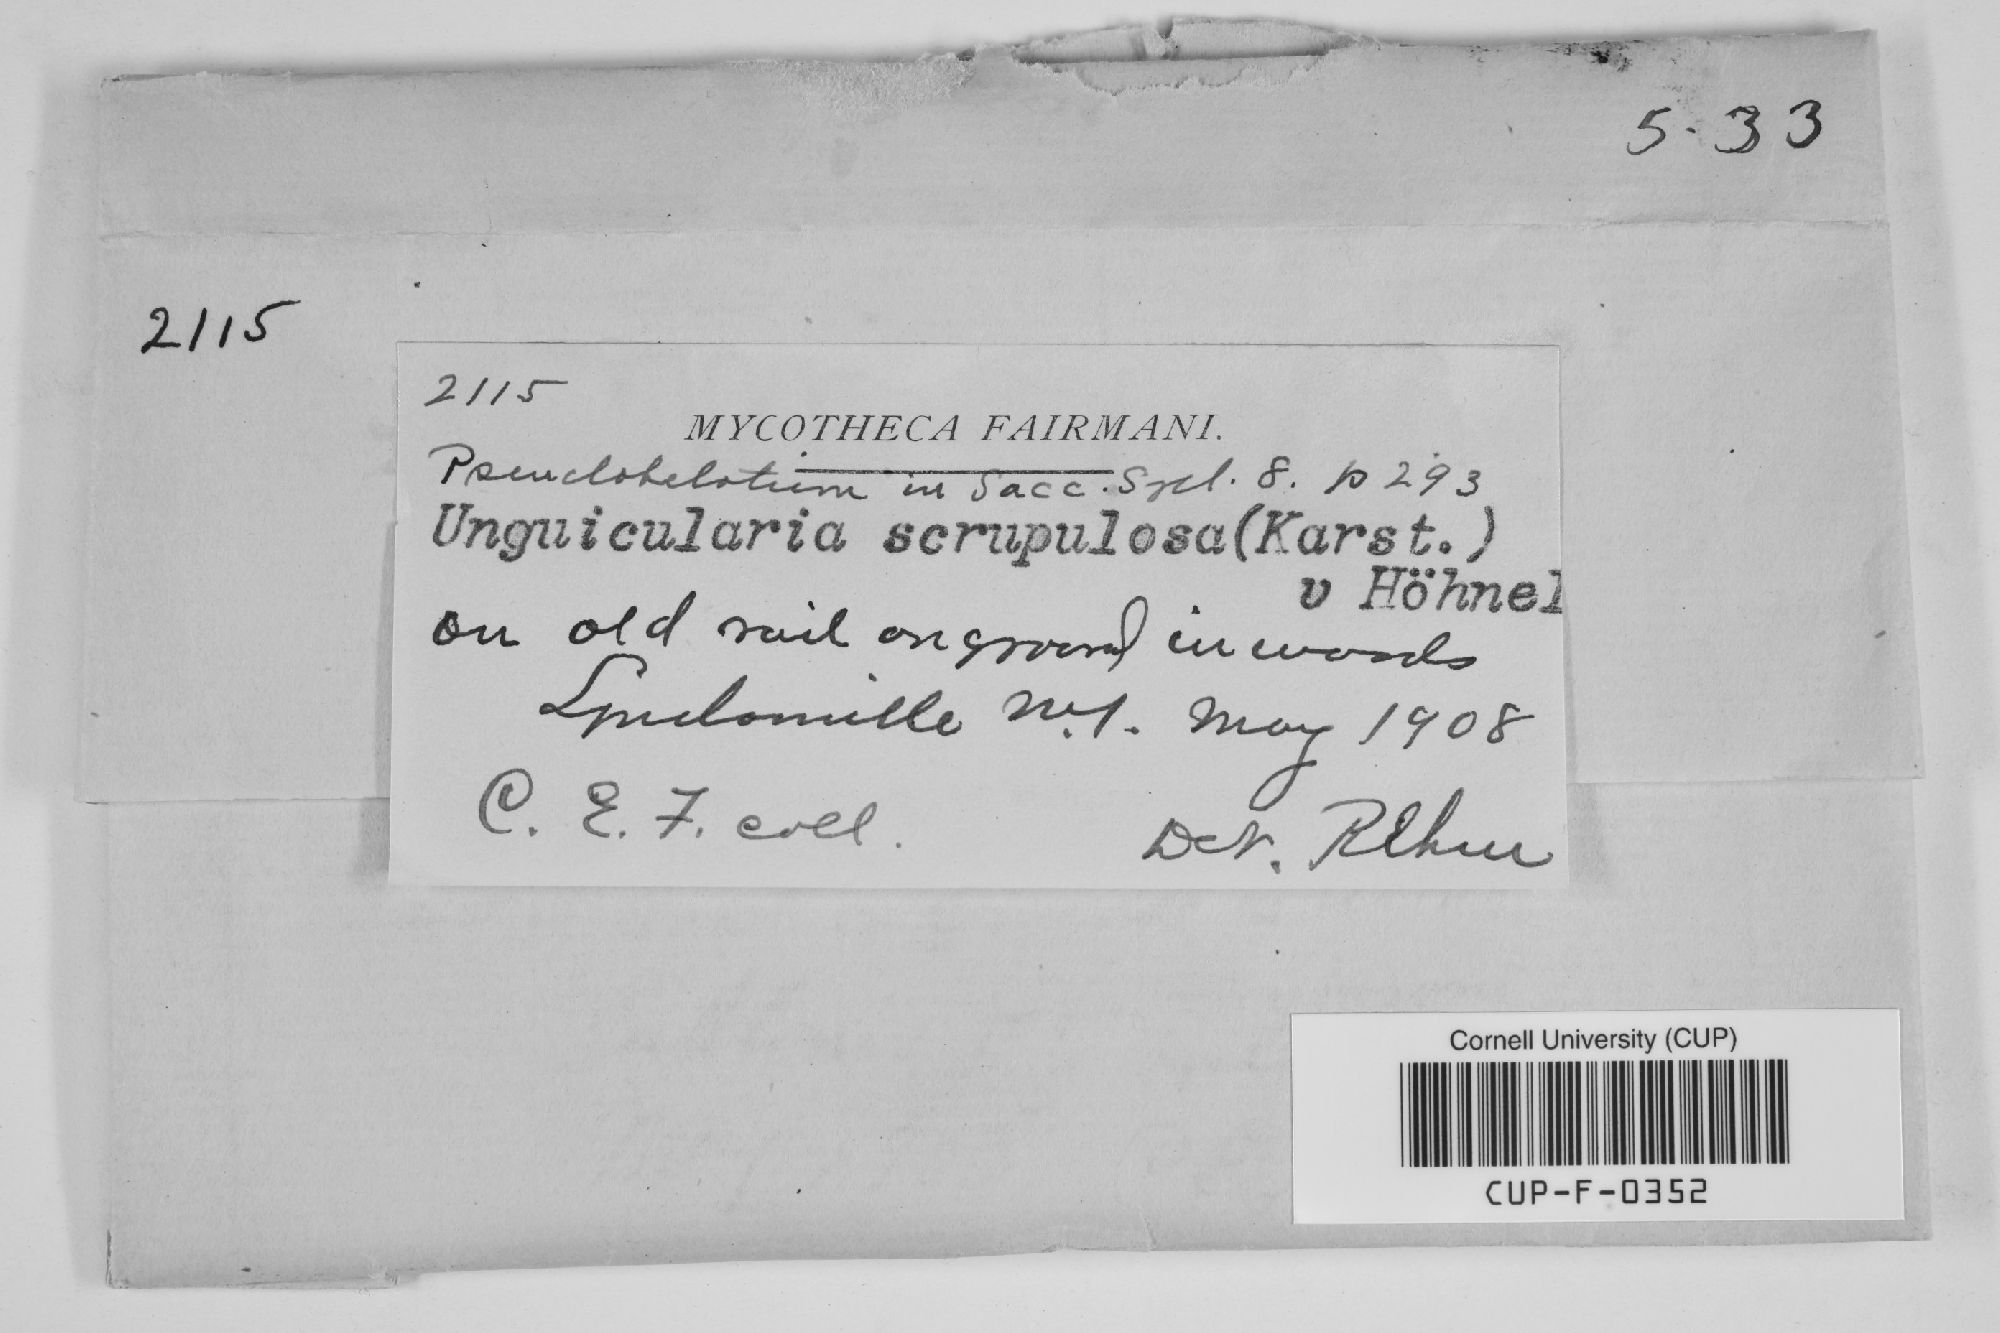 5-33
2115
2115
MYCOTHECA FAIRMANI.
Pseudohelotium in Sacc. Syl. 8. p 293
Unguicularia scrupulosa (Karst.)
v Höhnel
on old rail on ground in woods
Lyndonville N.Y. May 1908
C. E. F. coll.
Det. Rehm
Cornell University (CUP)
CUP-F-0352